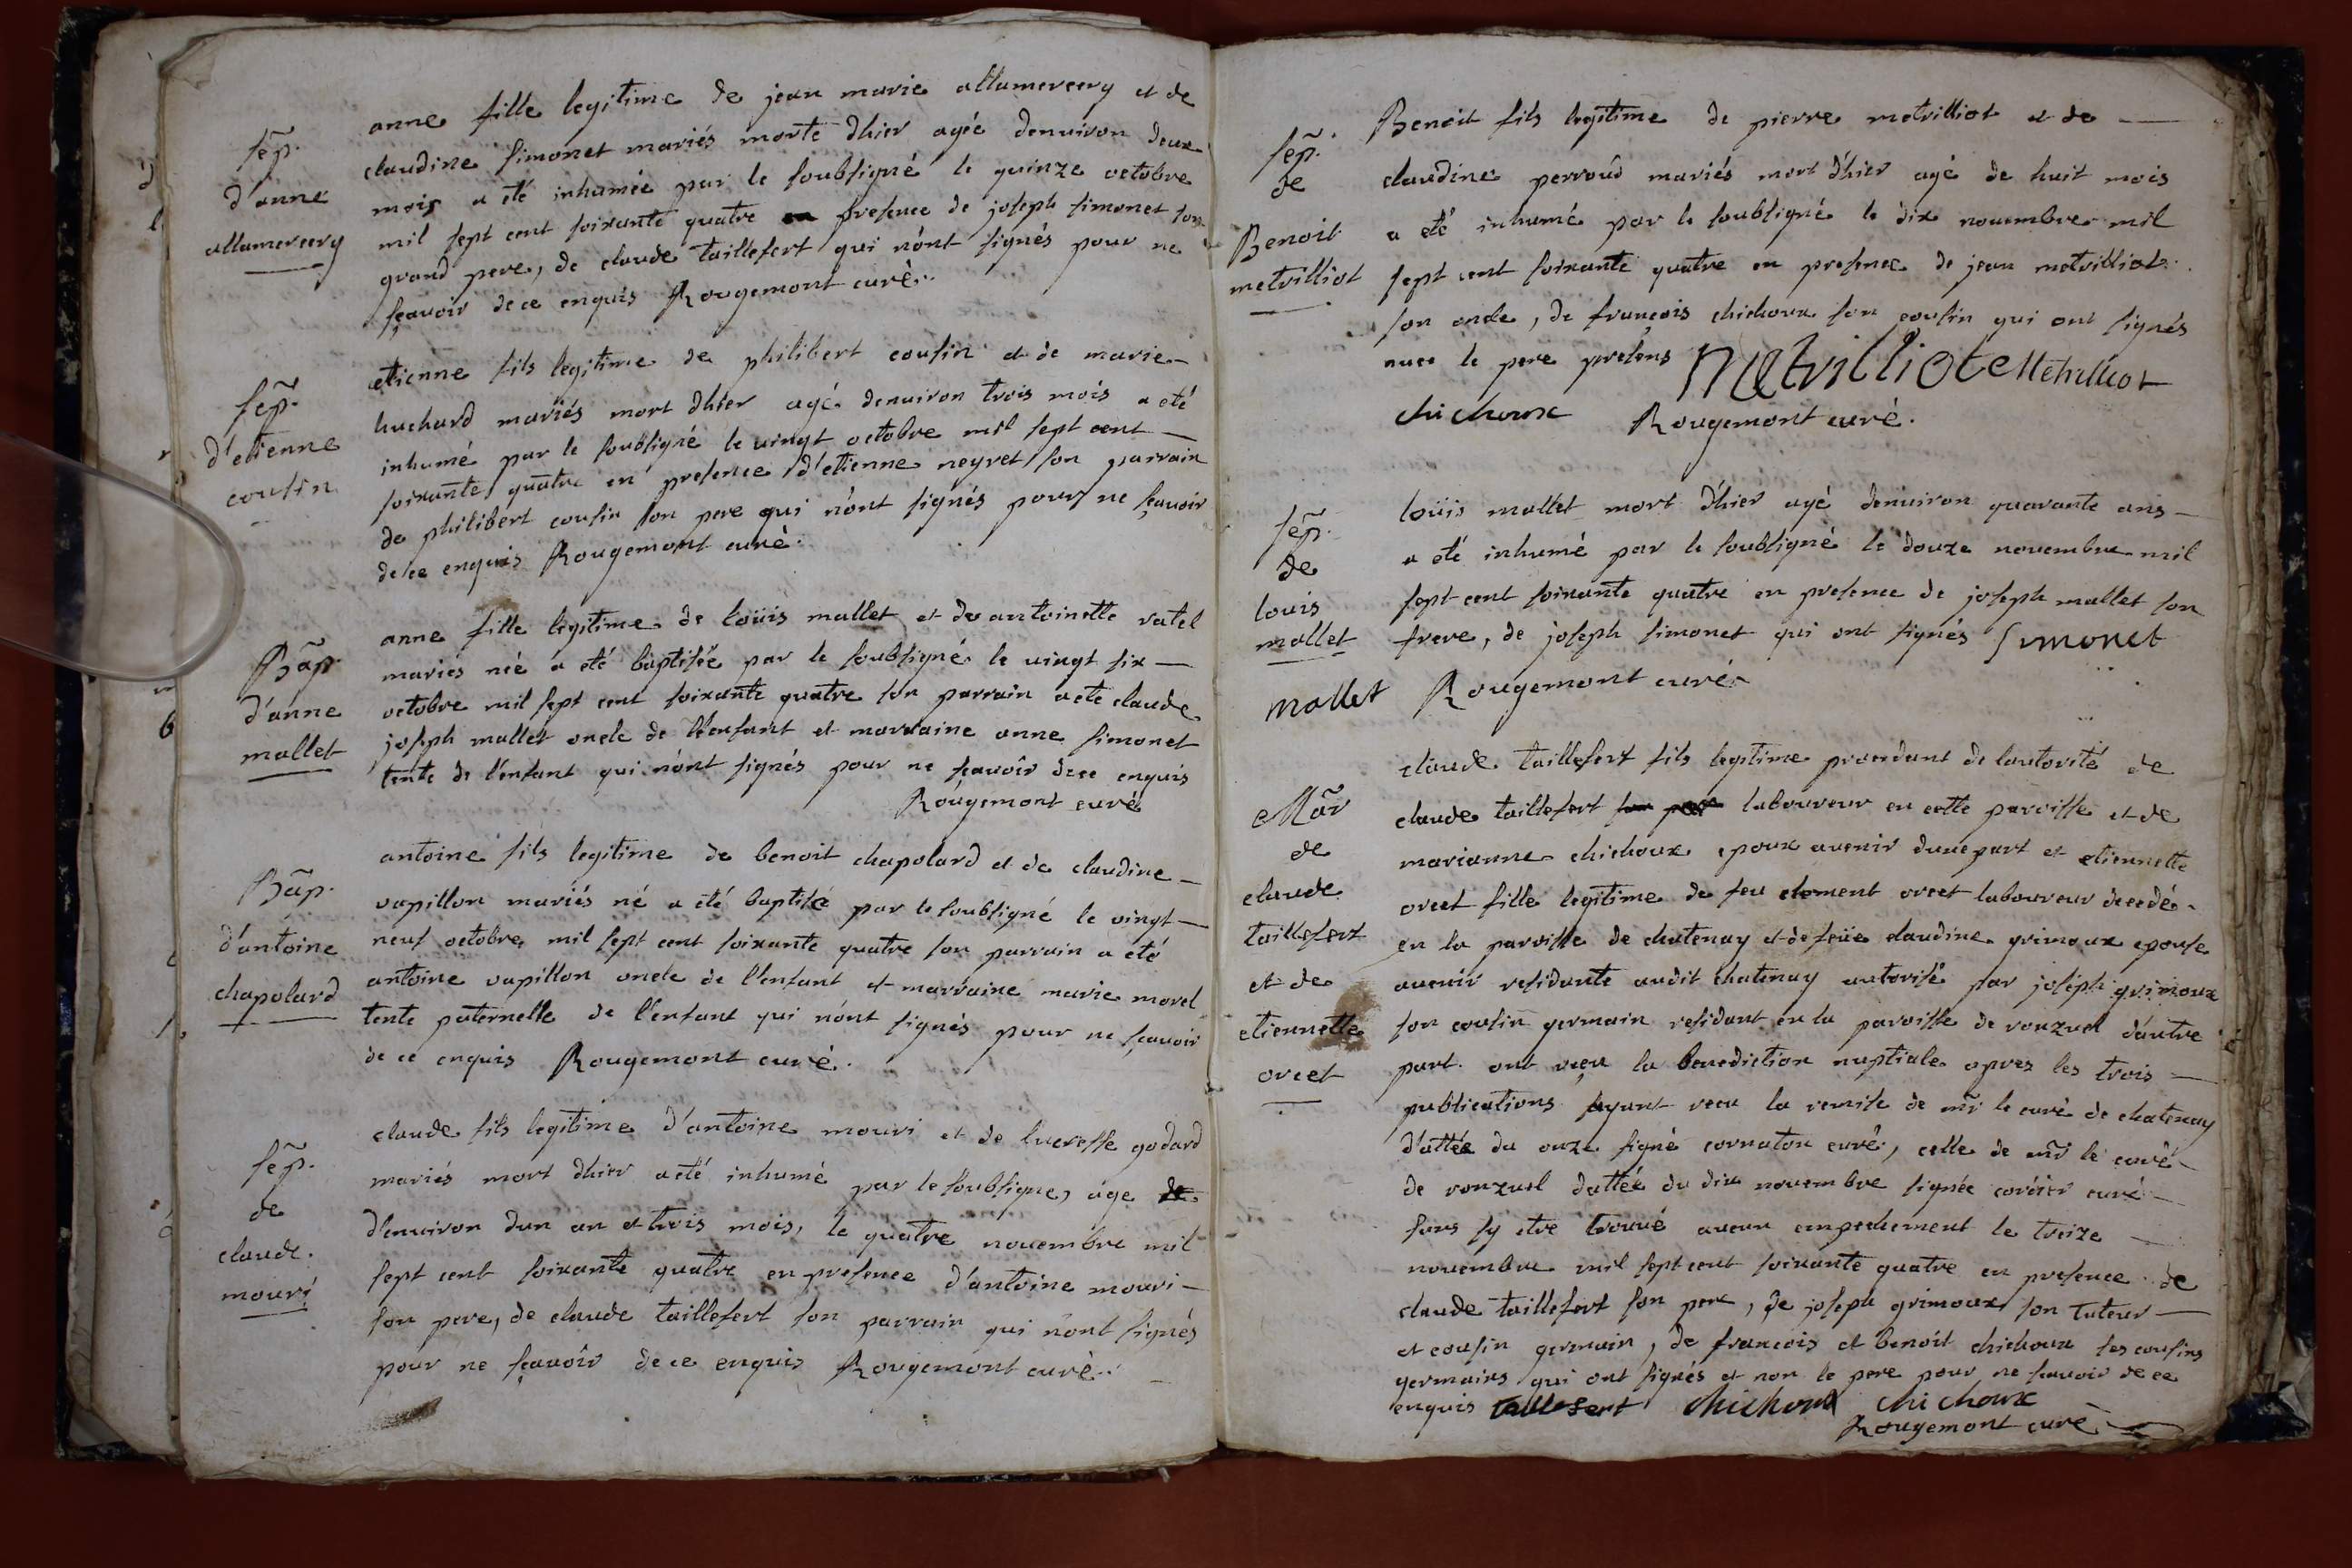 sep.
d'anne
allamercery
anne fille legitime de jean marie allamercery et de
claudine simonet mariés morte dhier agée denuiron deux
mois a eté inhumée par le soubsigné le quinze octobre
mil sept cent soixante quatre en presence de joseph simonet son
grand pere, de claude taillefert qui n'ont signés pour ne
sçavoir de ce enquis Rougemont curé.
sep.
d'etienne
cousin
etienne fils legitime de philibert cousin et de marie
huchard mariés mort dhier agé denuiron trois mois a eté
inhumé par le soubsigné le uingt octobre mil sept cent
soixante quatre en presence d'etienne neyret son parrain
de philibert cousin son pere qui n'ont signés pour ne sçavoir
de ce enquis Rougemont curé.
Bap.
d'anne
mallet
anne fille legitime de loüis mallet et de antoinette ratel
mariés née a eté baptisée par le soubsigné le uingt six
octobre mil sept cent soixante quatre son parrain a ete claude
joseph mallet oncle de l'enfant et marraine anne simonet
tente de l'enfant qui n'ont signés pour ne sçavoir de ce enquis
Rougemont curé
Bap.
d'antoine
chapolard
antoine fils legitime de benoit chapolard et de claudine
vapillon mariés né a eté baptisé par le soubsigné le vingt
neuf octobre mil sept cent soixante quatre son parrain a eté
antoine vapillon oncle de l'enfant et marraine marie morel
tente paternelle de l'enfant qui n'ont signés pour ne sçavoir
de ce enquis Rougemont curé.
sep.
de
claude
mouri
claude fils legitime d'antoine mouri et de lucresse godard
mariés mort dhier a eté inhumé par le soubsigné, age de
d'enuiron dun an et trois mois, le quatre nouembre mil
sept cent soixante quatre en presence d'antoine mouri
son pere, de claude taillefert son parrain qui n'ont signés
pour ne sçavoir de ce enquis Rougemont curé.
sep.
de
Benoit
metrilliot
Benoit fils legitime de pierre metrilliot et de
claudine perroud mariés mort d'hier agé de huit mois
a eté inhumé par le soubsigné le dix nouembre mil
sept cent soixante quatre en presence de jean metrilliot
son oncle, de françois chichoux son cousin qui ont signés
auec le pere presens Metrilliot Metrilliot
chichoux Rougemont curé.
sep.
de
louis
mallet
loüis mallet mort d'hier agé denuiron quarante ans
a eté inhumé par le soubsigné le douze novembre mil
sept cent soixante quatre en presence de joseph mallet son
frere, de joseph simonet qui ont signés Simonet
mallet Rougemont curé
Mar
de
claude
taillefert
et de
etiennette
orcet
claude taillefert fils legitime procedant de lautorité de
claude taillefert son pere laboureur en cette paroisse et de
marianne chichoux epoux auenir dune part et etiennette
orcet fille legitime de feu clement orcet laboureur decedé
en la paroisse de chatenay et de feüe claudine grimoux epouse
auenir residante audit chatenay autorisé par joseph grimoux
son cousin germain residant en la paroisse de ronzuel d'autre
part ont reçu la benediction nuptiale apres les trois
publications ayant recu la remise de mr le curé de chatenay
dattée du onze signé cornaton curé, celle de mr le curé
de ronzuel dattée du dix nouembre signée cordier curé
sans sy etre trouué aucun empechement le treize
nouembre mil sept cent soixante quatre en presence de
claude taillefert son pere, de joseph grimoux son tuteur
et cousin germain, de françois et benoit chichoux ses cousins
germains qui ont signés et non le pere pour ne sçauoir de ce
enquis taillefert chichoux chichoux
Rougemont curé